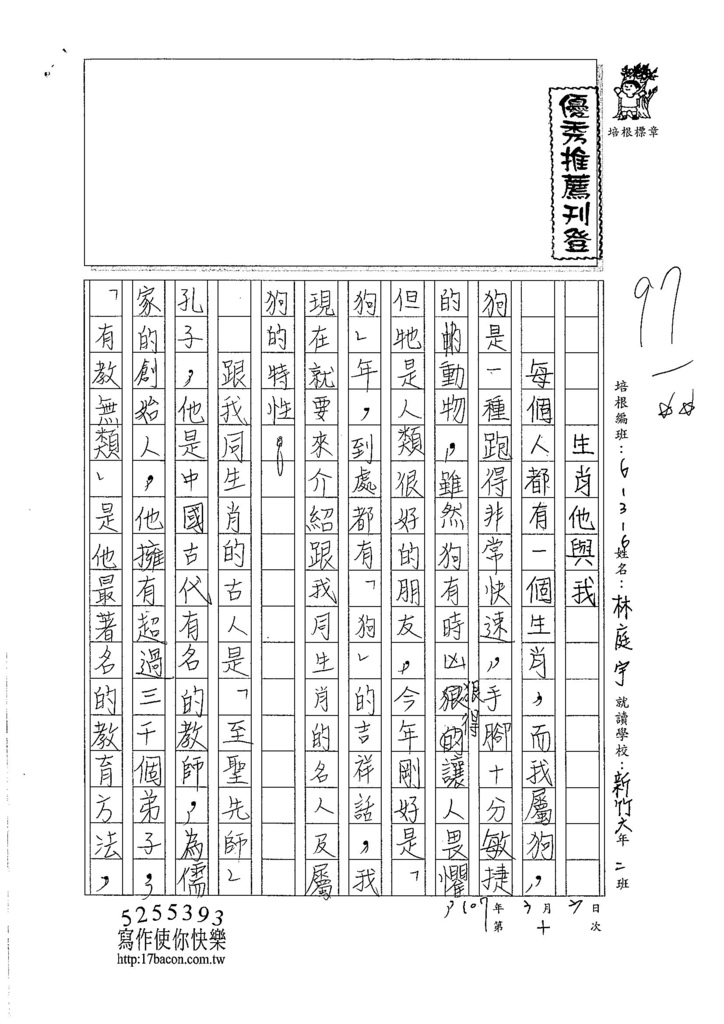 培根標章
優秀推薦刊登
97
培根編班：61316 姓名：林庭宇 就讀學校：新竹 六年二班
生肖他與我
每個人都有一個生肖，而我屬狗，
狗是一種跑得非常快速，手腳十分敏捷
的動物，雖然狗有時凶狠得讓人畏懼
但牠是人類很好的朋友。今年剛好是「
狗」年，到處都有「狗」的吉祥話，我
現在就要來介紹跟我同生肖的名人及屬
狗的特性。
跟我同生肖的古人是「至聖先師」
孔子，他是中國古代有名的教師，為儒
家的創始人，他擁有超過三千個弟子，
「有教無類」是他最著名的教育方法，
107年3月 日
第十次
5255393
寫作使你快樂
http:17bacon.com.tw